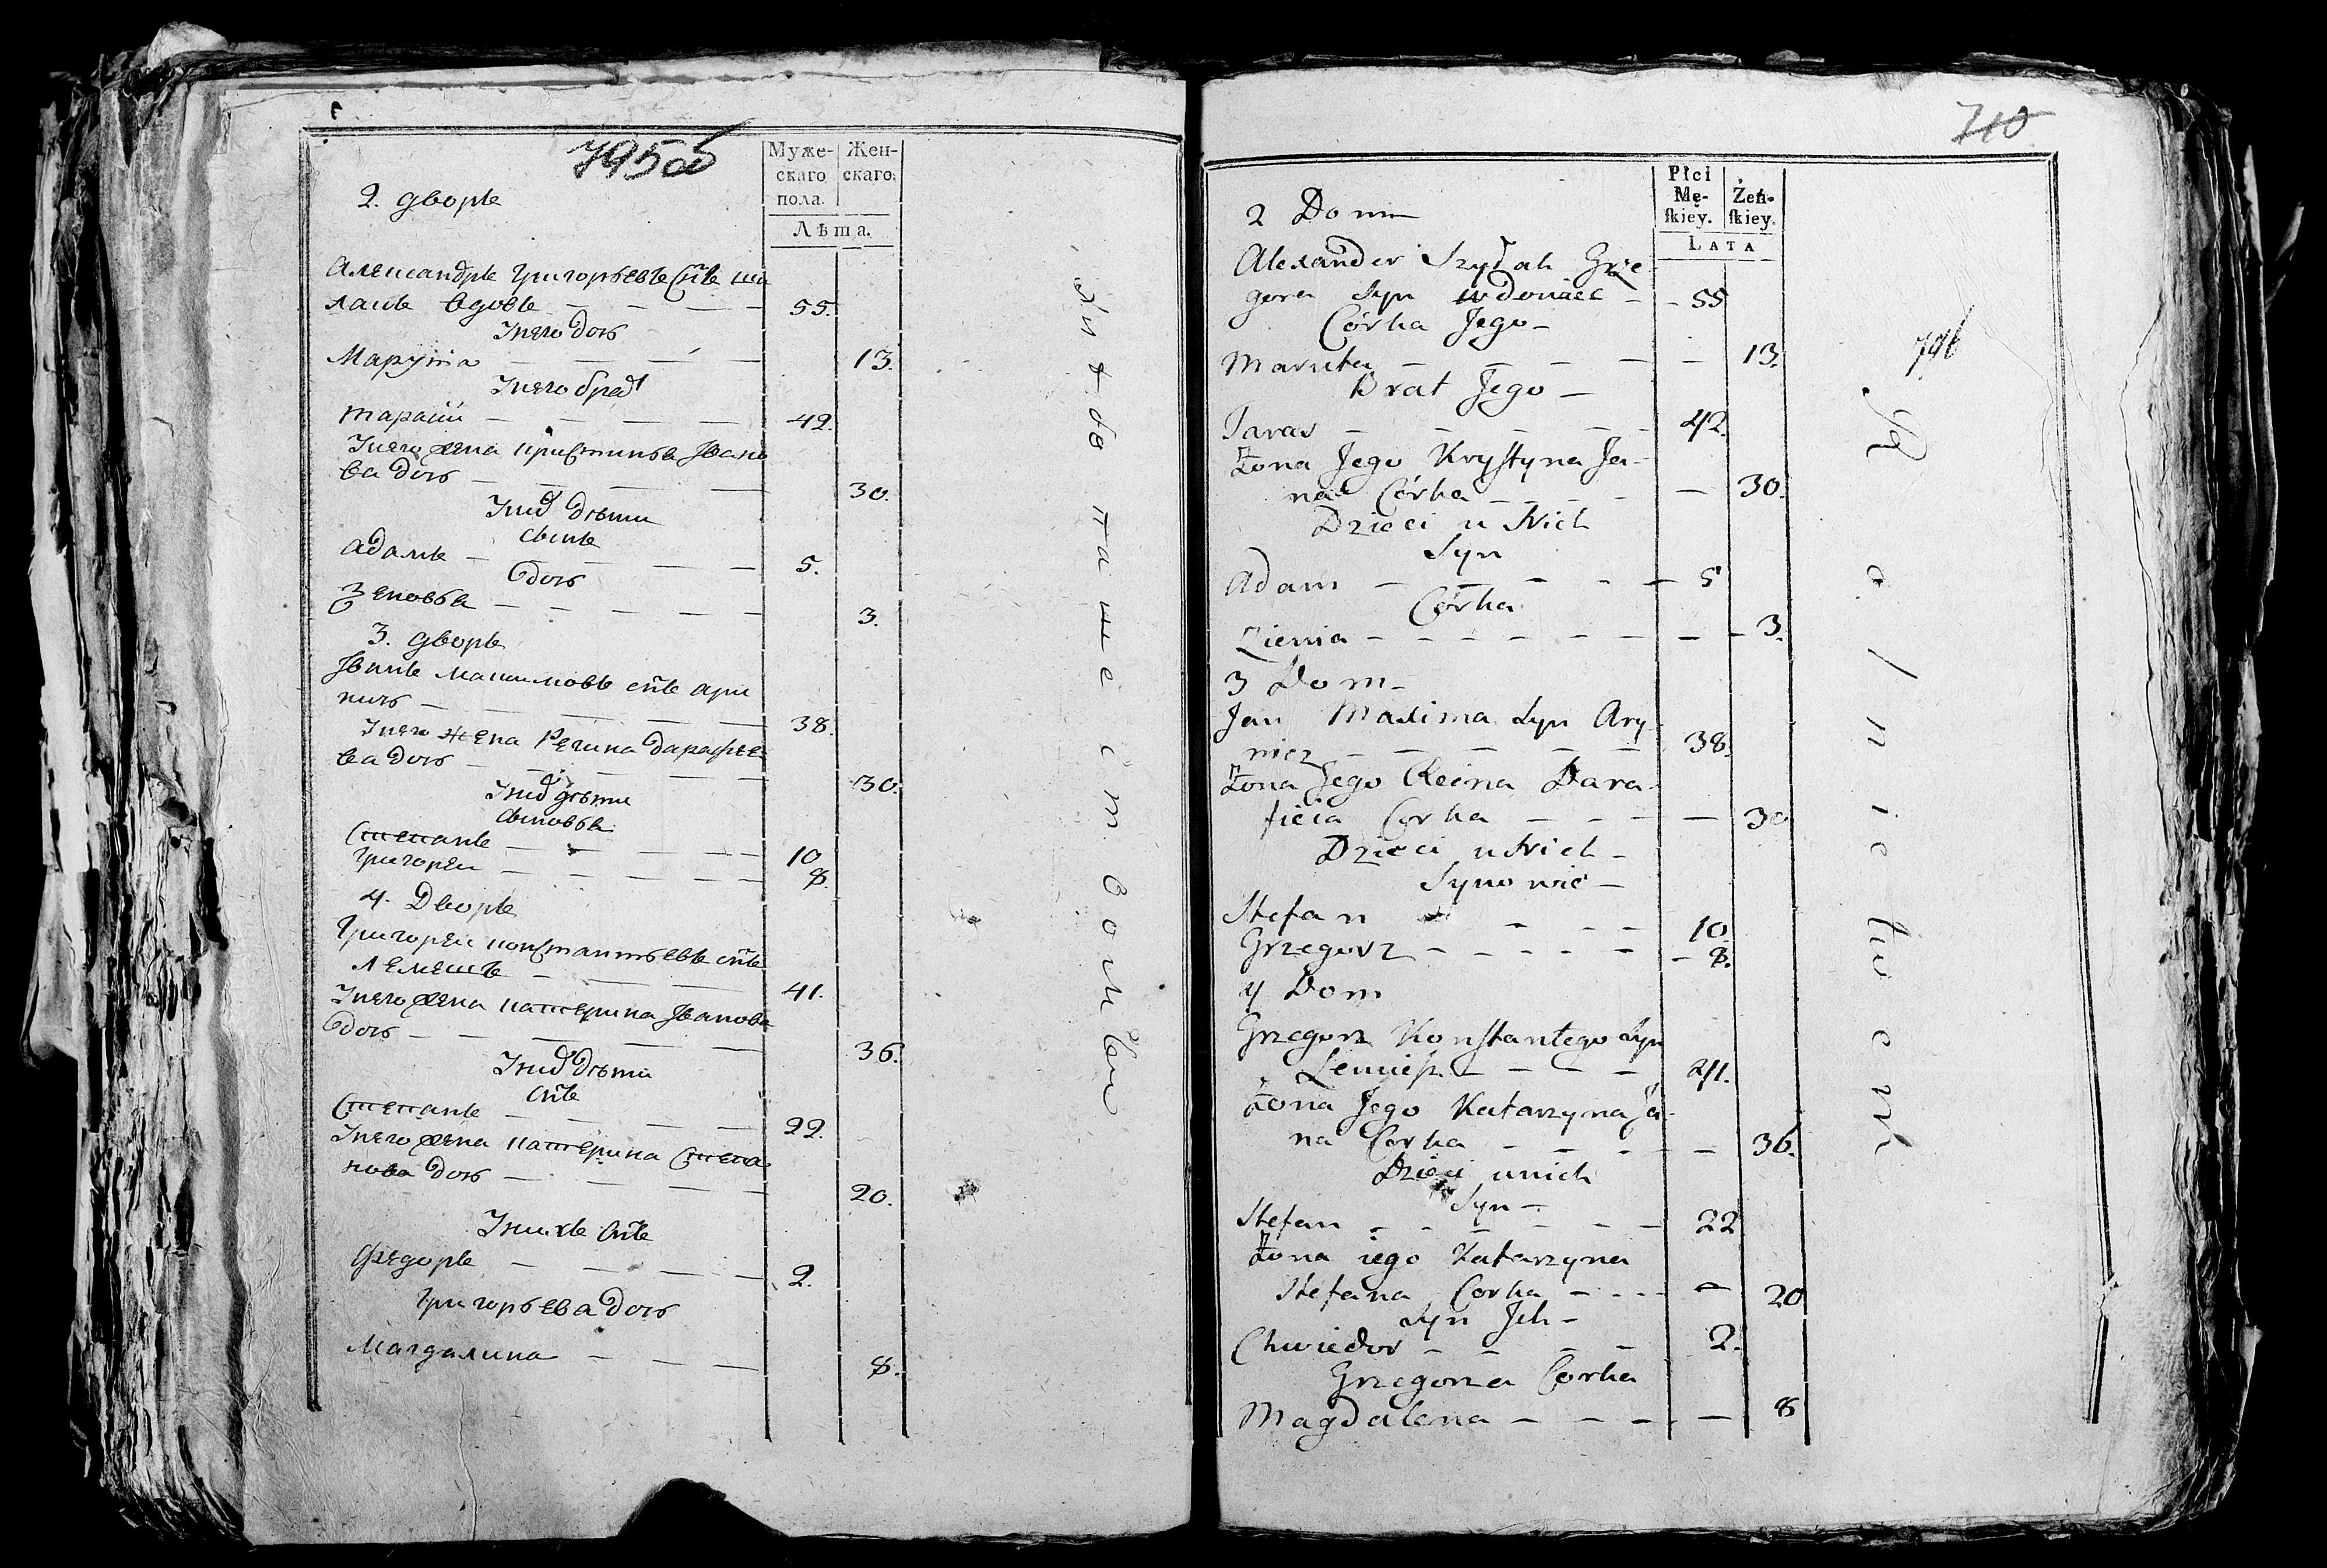 795об
Муже-
скаго
пола.
Жен-
скаго.
Лѣта.
2. дворъ
Александръ Григорьевъ снъ ша
лакъ вдовъ 55.
У него дочь
Марута 13.
У него братъ
Тарасъ 42.
У него жена Кристинья Івано
ва дочь 30.
У них дѣти
сынъ
Адамъ 5.
дочь
Зеновья 3.
3. дворъ
Іванъ Максимовъ снъ Ари
ничь 38.
У него жена Регина Дарафее
ва дочь 30.
У них дѣти
сыновья
Степанъ 10
Григореи 8.
4. Дворъ
Григореи Константьевъ снъ
Лемешъ 41.
У него жена Катерина Іванова
дочь 36.
У них дѣти
снъ
Степанъ 22.
У него жена Катерина Степа
нова дочь 20.
У нихъ снъ
Федоръ 2.
Григорьева дочь
Магдалина 8.
710
Płci
Mę-
skiey.
Żeń-
skiey.
LATA
796
2 Dom
Alexander Szyłak Grze
gora Syn wdowiec 55
Córka Jego
Maruta 13.
Brat Jego
Taras 42.
Żona Jego Krystyna Ja-
na Córka 30.
Dzieci u Nich
Syn
Adam 5
Córka
Zienia 3.
3 Dom
Jan Maxima Syn Ary-
nicz 38.
Żona Jego Reina Dara-
fieia Corka 30
Dzieci u Nich
Synowie
Stefan 10
Grzegorz 8.
4 Dom
Grzegorz Konstantego Syn
Lemiesz 41.
Żona Jego Katarzyna Ja-
na Corka 36.
Dzieci u nich
Syn
Stefan 22
Żona iego Katarzyna
Stefana Corka 20
Syn Ich
Chwiedor 2.
Grzegorza Corka
Magdalena 8